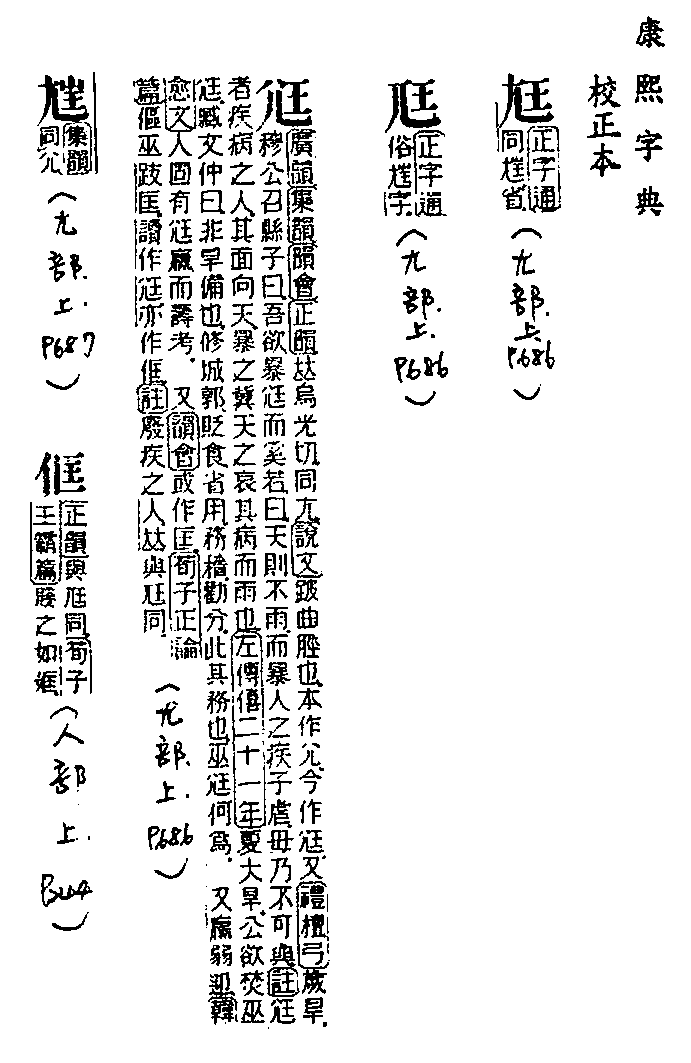 康熙字典
校正本
尪
正字通
同尩省
(尢部.上.P686)
尫
正字通
俗尩字
(尢部.上.P686)
尩
廣韻集韻韻會正韻𠀤烏光切同尢說文跛曲脛也本作尣今作尪又禮檀弓歲旱
穆公召縣子曰吾欲暴尪而奚若曰天則不雨而暴人之疾子虐毋乃不可與註尪
者疾病之人其面向天暴之冀天之哀其病而雨也左傳僖二十一年夏大旱公欲焚巫
尪臧文仲曰非旱備也修城郭貶食省用務穡勸分此其務也巫尪何爲 又羸弱也韓
愈文人固有尪羸而壽考 又韻會或作匡荀子正論
篇傴巫跛匡讀作尪亦作㑌註廢疾之人𠀤與尪同
(尢部.上.P686)
集韻
同尣
(尢部.上.P687)
㑌
正韻與尪同荀子
王霸篇賤之如㑌
(人部上.